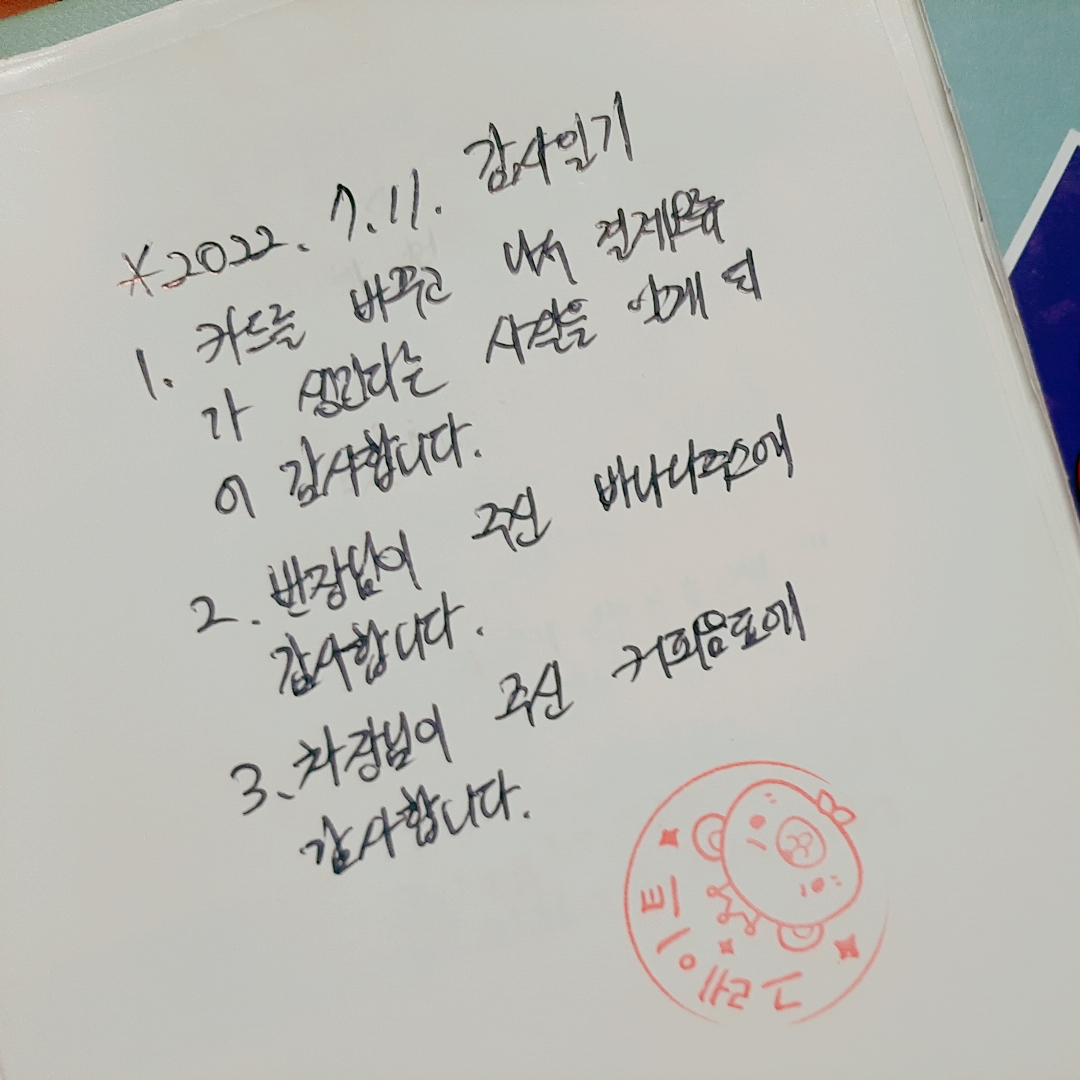 *2022. 7. 11. 감사일기
1. 카드를 바꾸고 나서 결제오류
가 생긴다는 사실을 알게 되
어 감사합니다.
2. 반장님이 주신 바나나주스에
감사합니다.
3. 차장님이 주신 커피음료에
감사합니다.